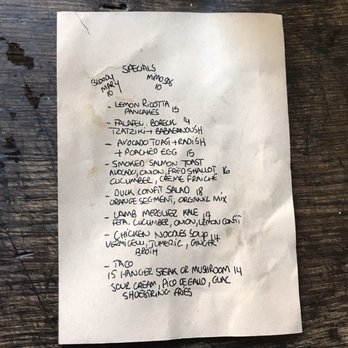 SPECIALS
BLOODY MARY 10
MIMOSAS 10
- LEMON RICOTTA PANCAKES 15
- FALAFEL BORECK 14
TZATZIKI + BABAGANOUSH
- AVOCADO TOAST + RADISH
+ POACHED EGG 15
- SMOKED SALMON TOAST
AVOCADO, ONION, FRIED SHALLOT 16
CUCUMBER, CREME FRAICHE
- DUCK CONFIT SALAD 18
ORANGE SEGMENT, ORGANIC MIX
- LAMB MERGUEZ KALE 19
FETA, CUCUMBER, ONION, LEMON CONFIT
- CHICKEN NOODLES SOUP 14
VERMICELLI, TUMERIC, GINGER
BROTH
- TACO
15 HANGER STEAK OR MUSHROOM 14
SOUR CREAM, PICO DE GALLO, GUAC
SHOESTRING FRIES